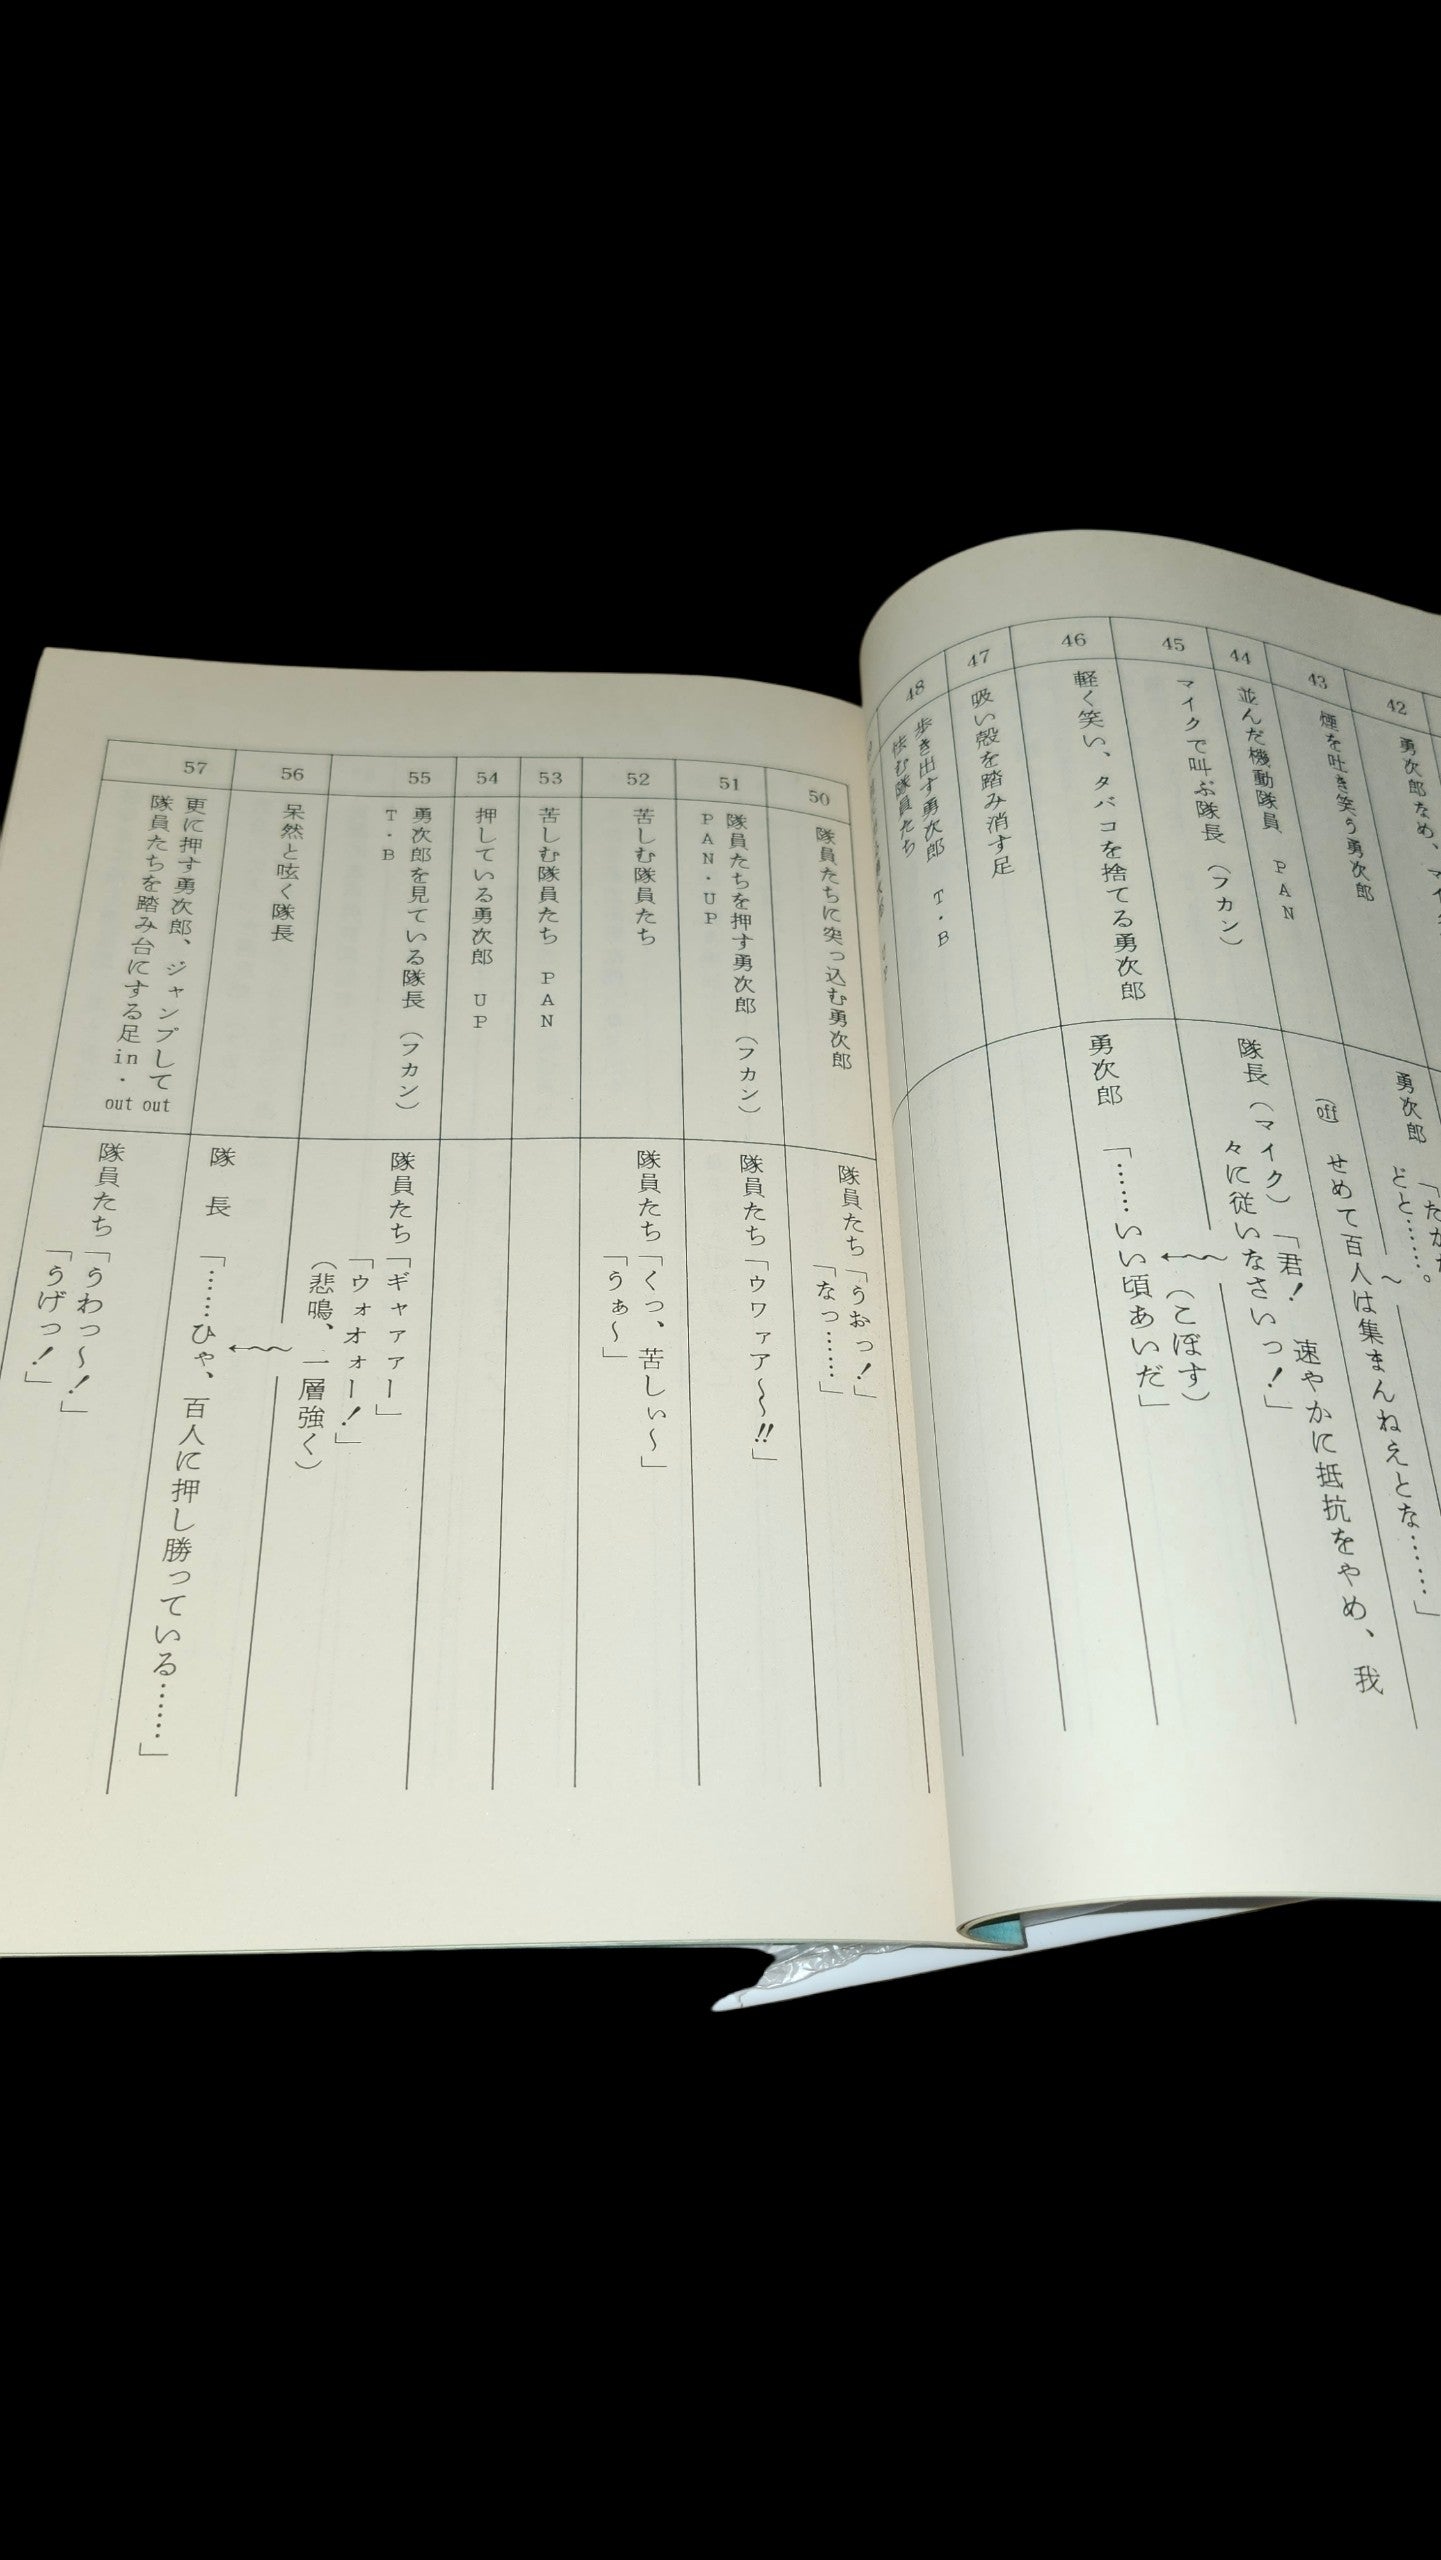 42
勇次郎なめ、マイ
勇次郎
どと……。
43
煙を吐き笑う勇次郎
off
せめて百人は集まんねえとな……」
44
並んだ機動隊員 PAN
45
マイクで叫ぶ隊長（フカン）
隊長（マイク）「君！ 速やかに抵抗をやめ、我
々に従いなさいっ！」
46
軽く笑い、タバコを捨てる勇次郎
（こぼす）
勇次郎「……いい頃あいだ」
47
吸い殻を踏み消す足
48
歩き出す勇次郎 T・B
怯む隊員たち
50
隊員たちに突っ込む勇次郎
隊員たち「うおっ！」
「なっ……」
51
隊員たちを押す勇次郎（フカン）
PAN・UP
隊員たち「ウワァア〜〜!!」
52
苦しむ隊員たち
隊員たち「くっ、苦しぃ〜」
「うぁ〜」
53
苦しむ隊員たち PAN
54
押している勇次郎 UP
55
勇次郎を見ている隊長（フカン）
T・B
隊員たち「ギャァァー」
「ウォオォー！」
（悲鳴、一層強く）
56
呆然と呟く隊長
隊長「……ひゃ、百人に押し勝っている……」
57
更に押す勇次郎、ジャンプして out
隊員たちを踏み台にする足 in・out
隊員たち「うわっ〜！」
「うげっ！」